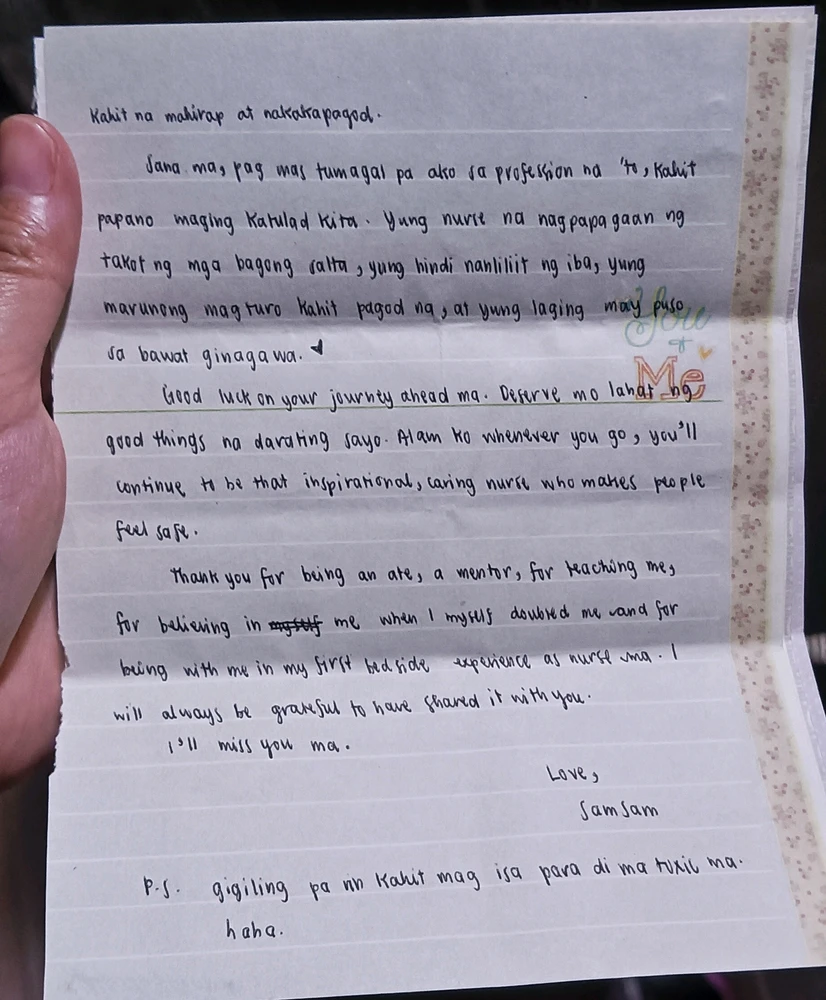 Kahit na mahirap at nakakapagod.
Sana ma, pag mas tumagal pa ako sa profession na 'to, kahit
papano maging katulad kita. Yung nurse na nagpapagaan ng
takot ng mga bagong salta, yung hindi nanliliit ng iba, yung
marunong magturo kahit pagod na, at yung laging may puso
sa bawat ginagawa.
You
&
Me
Good luck on your journey ahead ma. Deserve mo lahat ng
good things na darating sayo. Alam ko whenever you go, you'll
continue to be that inspirational, caring nurse who makes people
feel safe.
Thank you for being an ate, a mentor, for teaching me,
for believing in ~~myself~~ me when I myself doubted me and for
being with me in my first bedside experience as nurse ma. I
will always be grateful to have shared it with you.
I'll miss you ma.
Love,
SamSam
P.S. gigiling pa rin kahit mag isa para di ma toxic ma.
haha.